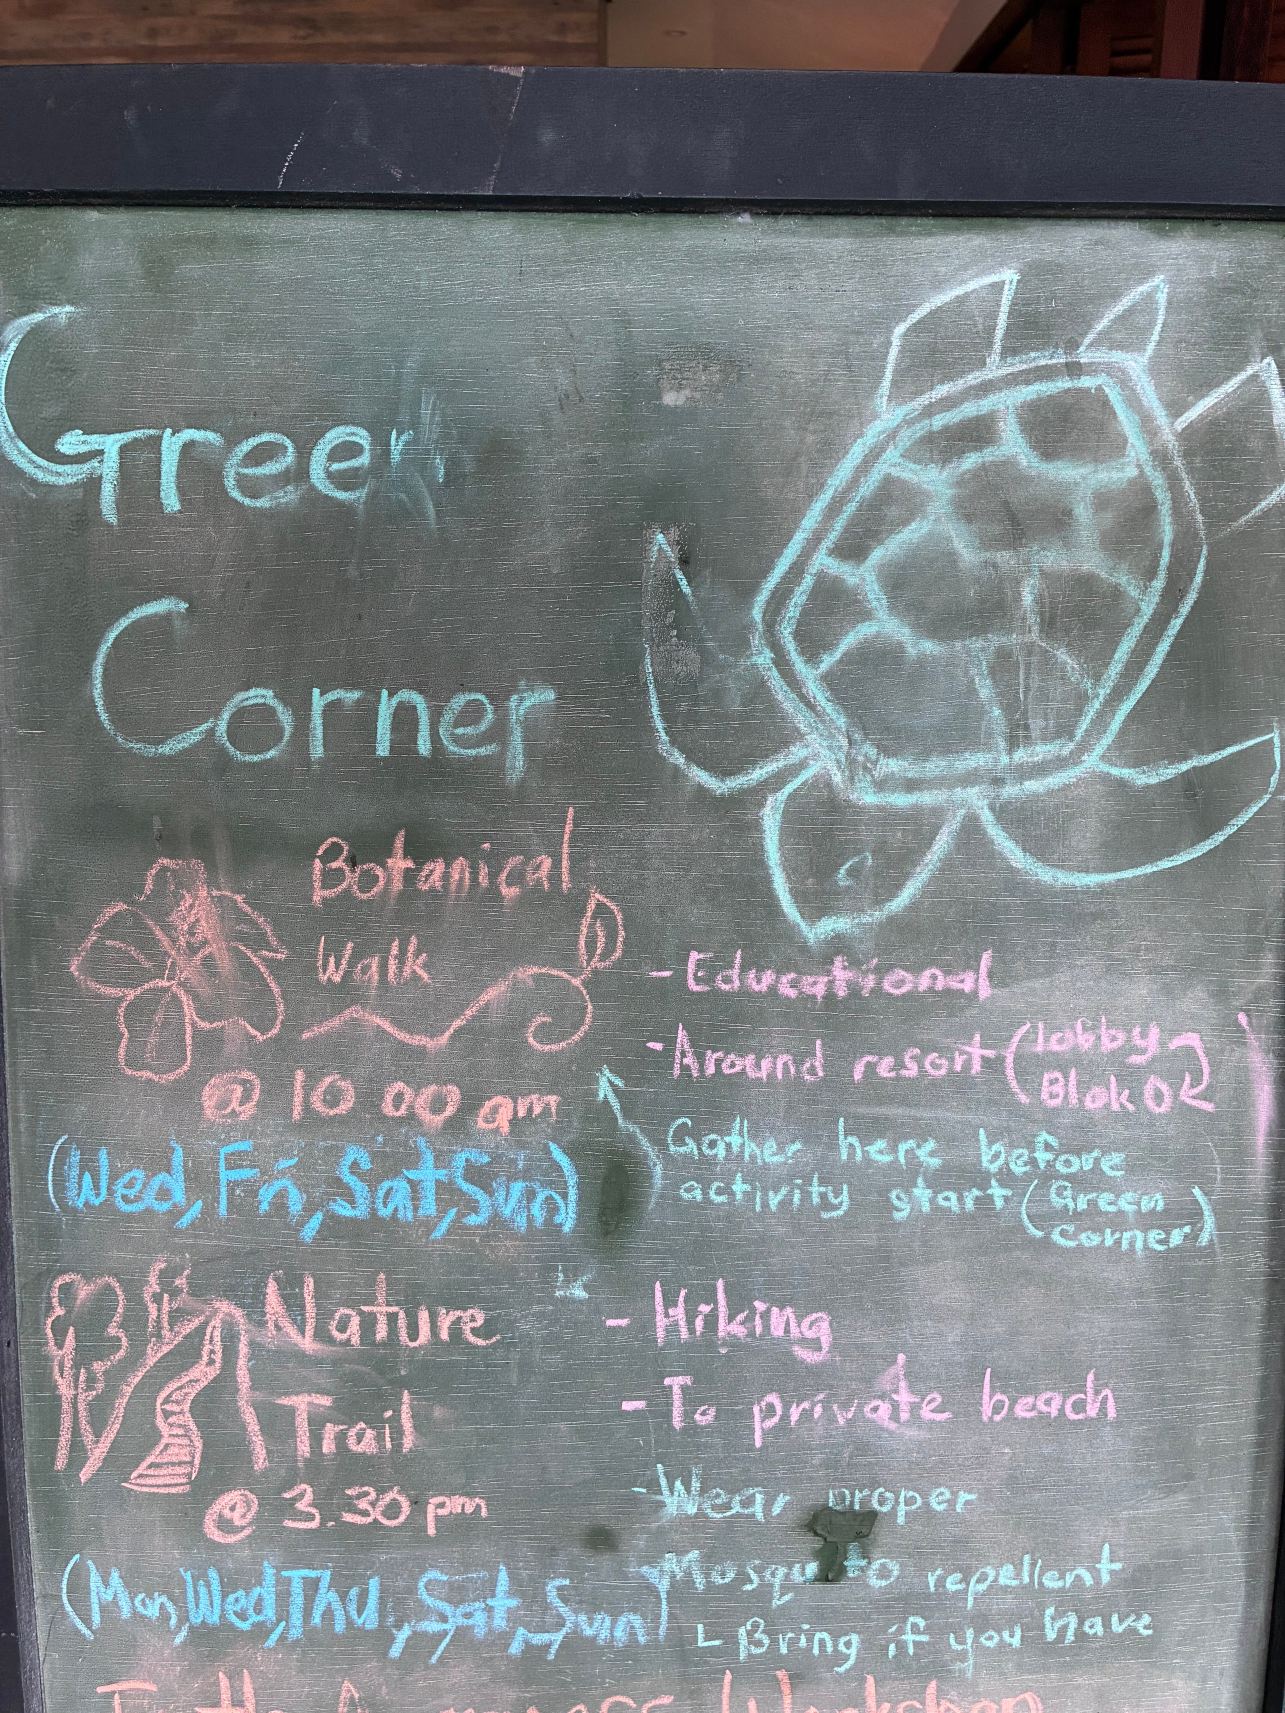 Green
Corner
Botanical
Walk
@ 10.00 am
(Wed, Fri, Sat, Sun)
- Educational
- Around resort (lobby
Blok D)
Gather here before
activity start (Green
corner)
Nature
Trail
@ 3.30 pm
(Mon, Wed, Thu, Sat, Sun)
- Hiking
- To private beach
- Wear proper
Mosquito repellent
Bring if you have
Workshop